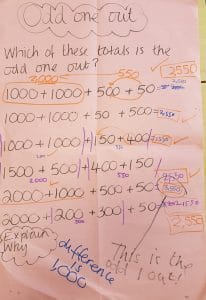 Odd one out
Which of these totals is the
odd one out?
2,000 550 3,550
1000+1000+500+50
1000+1000+50+500
1000+1000+150+400
1500+500+400+150
2,000 550
2000+1000+500+50
2000+200+300+50
2,550
Explain
Why
difference
is
1000
This is the
odd 1 out!